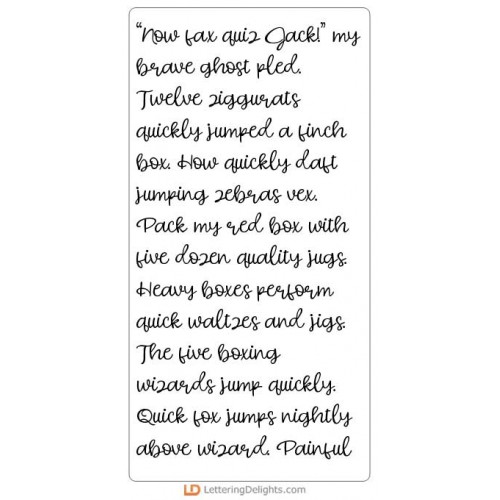 “Now fax quiz Jack!” my
brave ghost pled.
Twelve ziggurats
quickly jumped a finch
box. How quickly daft
jumping zebras vex.
Pack my red box with
five dozen quality jugs.
Heavy boxes perform
quick waltzes and jigs.
The five boxing
wizards jump quickly.
Quick fox jumps nightly
above wizard. Painful
LD LetteringDelights.com